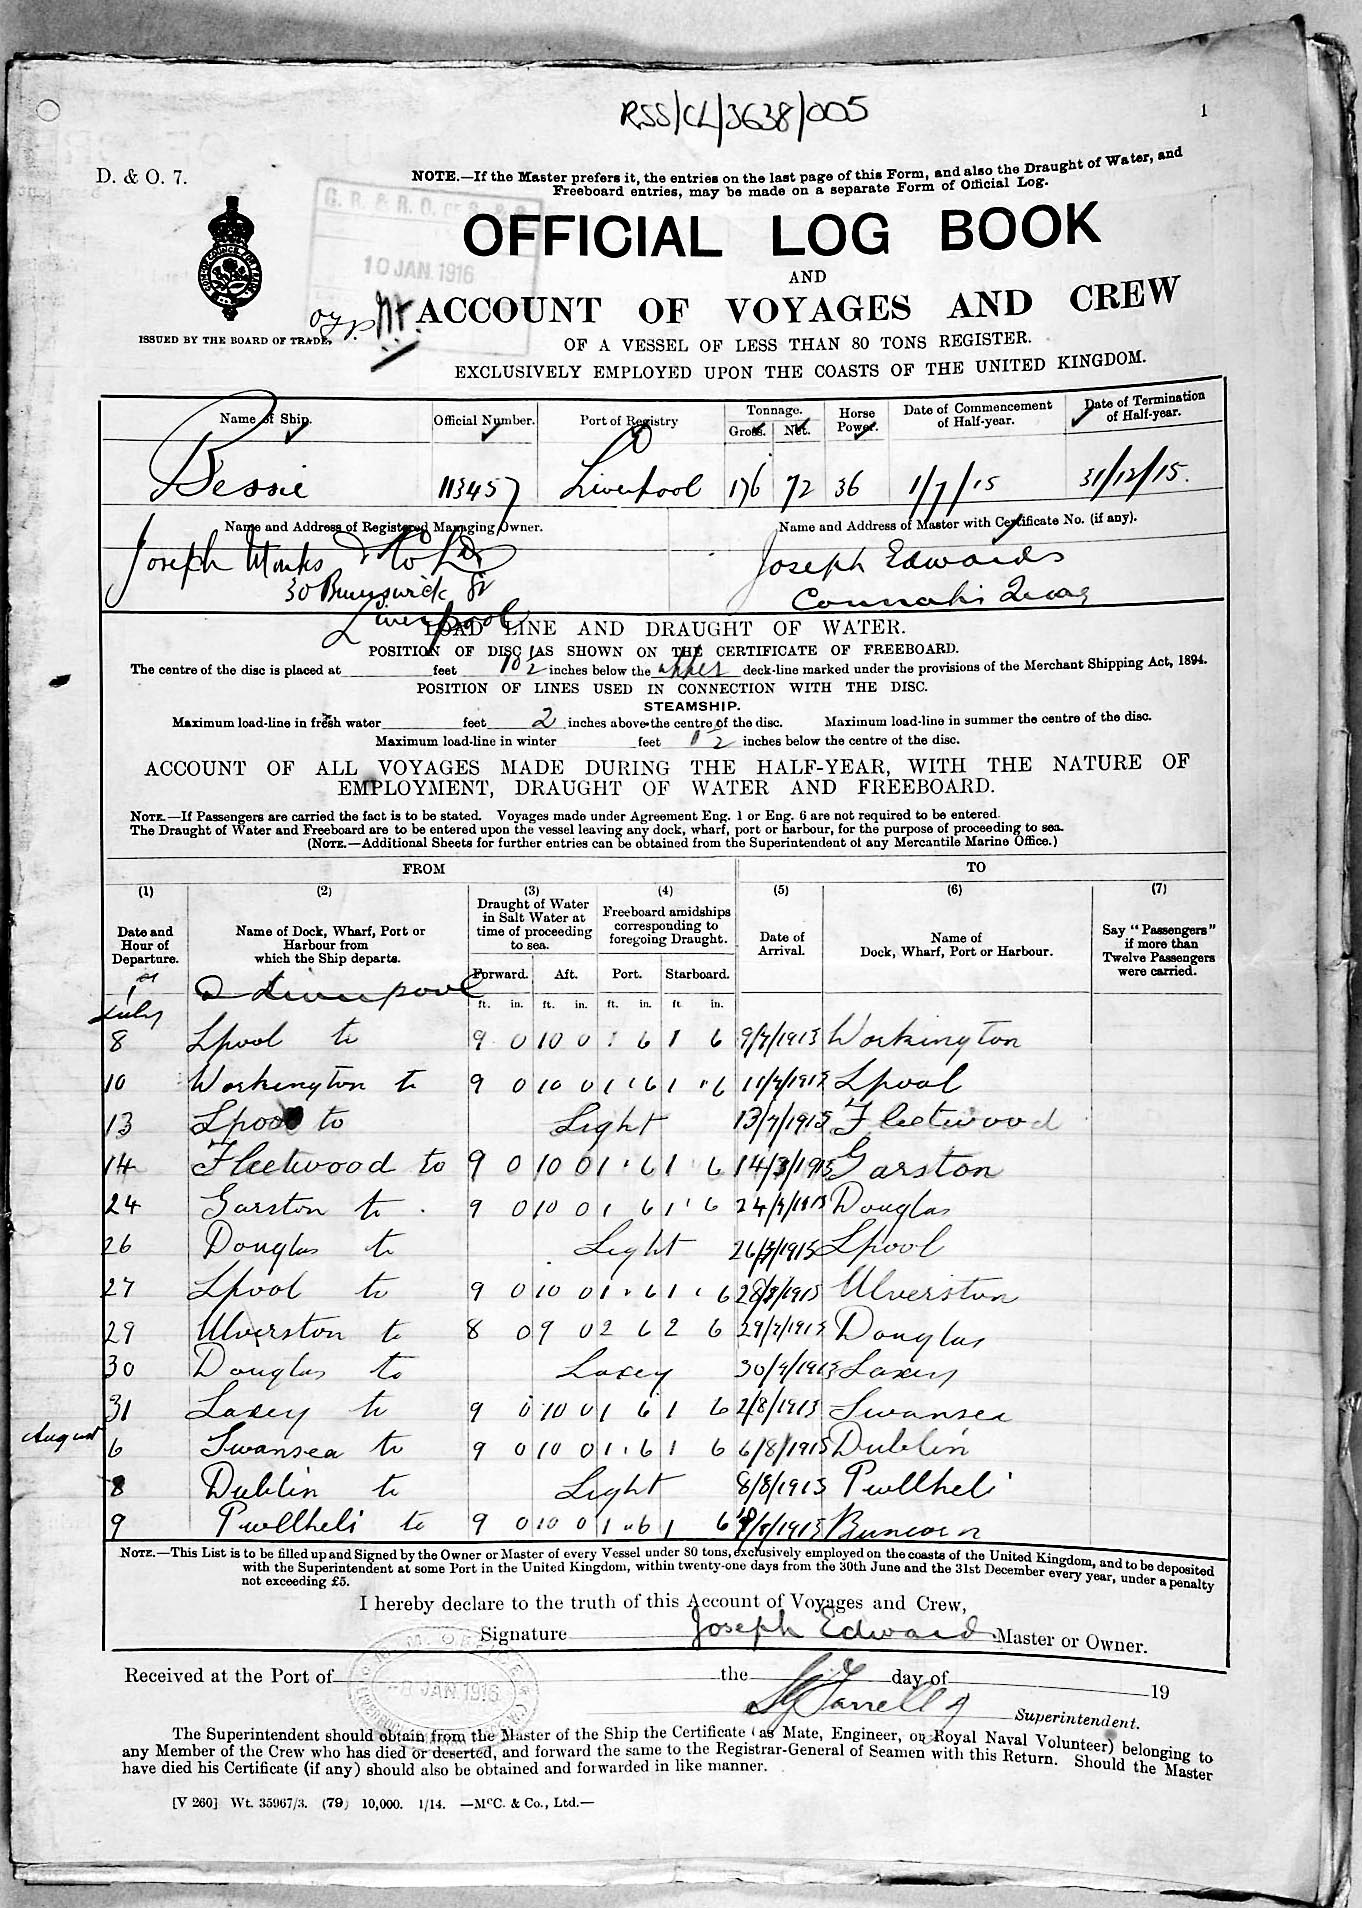 RSS/CL/3638/005
1
D. & O. 7.
NOTE.—If the Master prefers it, the entries on the last page of this Form, and also the Draught of Water, and
Freeboard entries, may be made on a separate Form of Official Log.
10 JAN. 1916
OFFICIAL LOG BOOK
AND
ACCOUNT OF VOYAGES AND CREW
ISSUED BY THE BOARD OF TRADE,
OF A VESSEL OF LESS THAN 80 TONS REGISTER.
EXCLUSIVELY EMPLOYED UPON THE COASTS OF THE UNITED KINGDOM.
Name of Ship. Official Number. Port of Registry Tonnage. Gross. Net. Horse Power. Date of Commencement of Half-year. Date of Termination of Half-year.
Bessie 113457 Liverpool 176 72 36 1/7/15 31/12/15.
Name and Address of Registered Managing Owner. Name and Address of Master with Certificate No. (if any).
Joseph Monks & Co Ld Joseph Edwards
30 Brunswick St Connahs Quay
Liverpool
LOAD LINE AND DRAUGHT OF WATER.
POSITION OF DISC (AS SHOWN ON THE CERTIFICATE OF FREEBOARD.
The centre of the disc is placed at feet 10½ inches below the upper deck-line marked under the provisions of the Merchant Shipping Act, 1894.
POSITION OF LINES USED IN CONNECTION WITH THE DISC.
STEAMSHIP.
Maximum load-line in fresh water feet 2 inches above the centre of the disc. Maximum load-line in summer the centre of the disc.
Maximum load-line in winter feet inches below the centre of the disc.
ACCOUNT OF ALL VOYAGES MADE DURING THE HALF-YEAR, WITH THE NATURE OF
EMPLOYMENT, DRAUGHT OF WATER AND FREEBOARD.
NOTE.—If Passengers are carried the fact is to be stated. Voyages made under Agreement Eng. 1 or Eng. 6 are not required to be entered.
The Draught of Water and Freeboard are to be entered upon the vessel leaving any dock, wharf, port or harbour, for the purpose of proceeding to sea.
(NOTE.—Additional Sheets for further entries can be obtained from the Superintendent of any Mercantile Marine Office.)
FROM TO
(1) (2) (3) (4) (5) (6) (7)
Date and Hour of Departure. Name of Dock, Wharf, Port or Harbour from which the Ship departs. Draught of Water in Salt Water at time of proceeding to sea. Freeboard amidships corresponding to foregoing Draught. Date of Arrival. Name of Dock, Wharf, Port or Harbour. Say "Passengers" if more than Twelve Passengers were carried.
Forward. Aft. Port. Starboard.
ft. in. ft. in. ft. in. ft. in.
1st Liverpool
July
8 Lpool to 9 0 10 0 1 6 1 6 9/7/1915 Workington
10 Workington to 9 0 10 0 1 6 1 6 11/7/1915 Lpool
13 Lpool to Light 13/7/1915 Fleetwood
14 Fleetwood to 9 0 10 0 1 6 1 6 14/7/1915 Garston
24 Garston to 9 0 10 0 1 6 1 6 24/7/1915 Douglas
26 Douglas to Light 26/7/1915 Lpool
27 Lpool to 9 0 10 0 1 6 1 6 28/7/1915 Ulverston
29 Ulverston to 8 0 9 0 2 6 2 6 29/7/1915 Douglas
30 Douglas to Laxey 30/7/1915 Laxey
31 Laxey to 9 0 10 0 1 6 1 6 2/8/1915 Swansea
August
6 Swansea to 9 0 10 0 1 6 1 6 6/8/1915 Dublin
8 Dublin to Light 8/8/1915 Pwllheli
9 Pwllheli to 9 0 10 0 1 6 1 6 /8/1915 Runcorn
NOTE.—This List is to be filled up and Signed by the Owner or Master of every Vessel under 80 tons, exclusively employed on the coasts of the United Kingdom, and to be deposited
with the Superintendent at some Port in the United Kingdom, within twenty-one days from the 30th June and the 31st December every year, under a penalty
not exceeding £5.
I hereby declare to the truth of this Account of Voyages and Crew,
Signature Joseph Edwards Master or Owner.
Received at the Port of the day of 19
JAN 1916
Farrell Superintendent.
The Superintendent should obtain from the Master of the Ship the Certificate (as Mate, Engineer, or Royal Naval Volunteer) belonging to
any Member of the Crew who has died or deserted, and forward the same to the Registrar-General of Seamen with this Return. Should the Master
have died his Certificate (if any) should also be obtained and forwarded in like manner.
[V 260] Wt. 35967/3. (79) 10,000. 1/14. —McC. & Co., Ltd.—